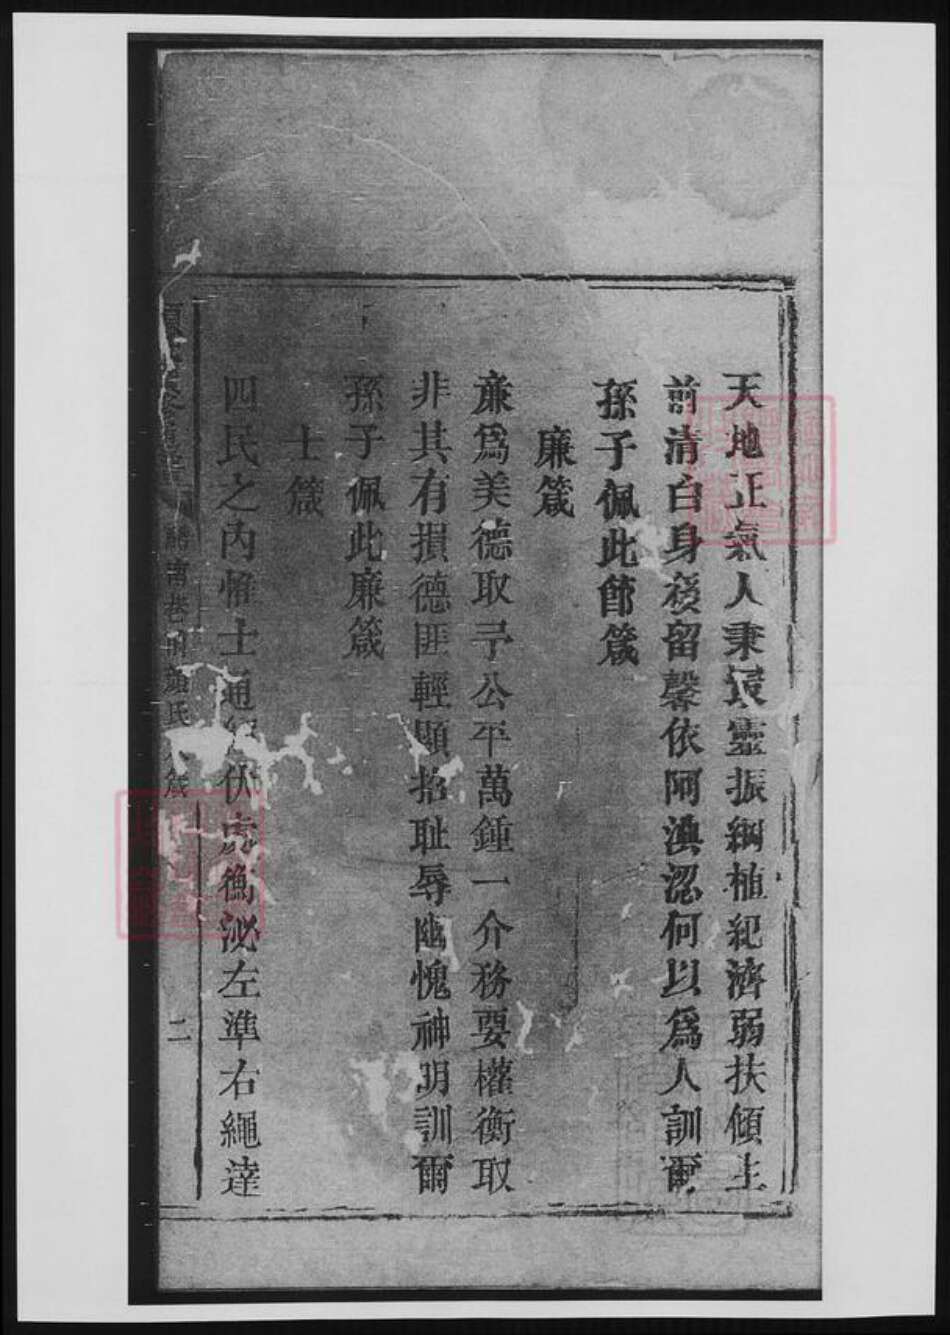 天地正氣人秉最靈振綱植紀濟弱扶傾生
前清白身後留馨依阿淟涊何以為人訓爾
孫子佩此節箴
廉箴
廉為美德取予公平萬鍾一介務要權衡取
非其有損德匪輕顯招耻辱幽愧神明訓爾
孫子佩此廉箴
士箴
四民之內惟士通伏處衡泌左準右繩達
南巷前顏氏箴
二